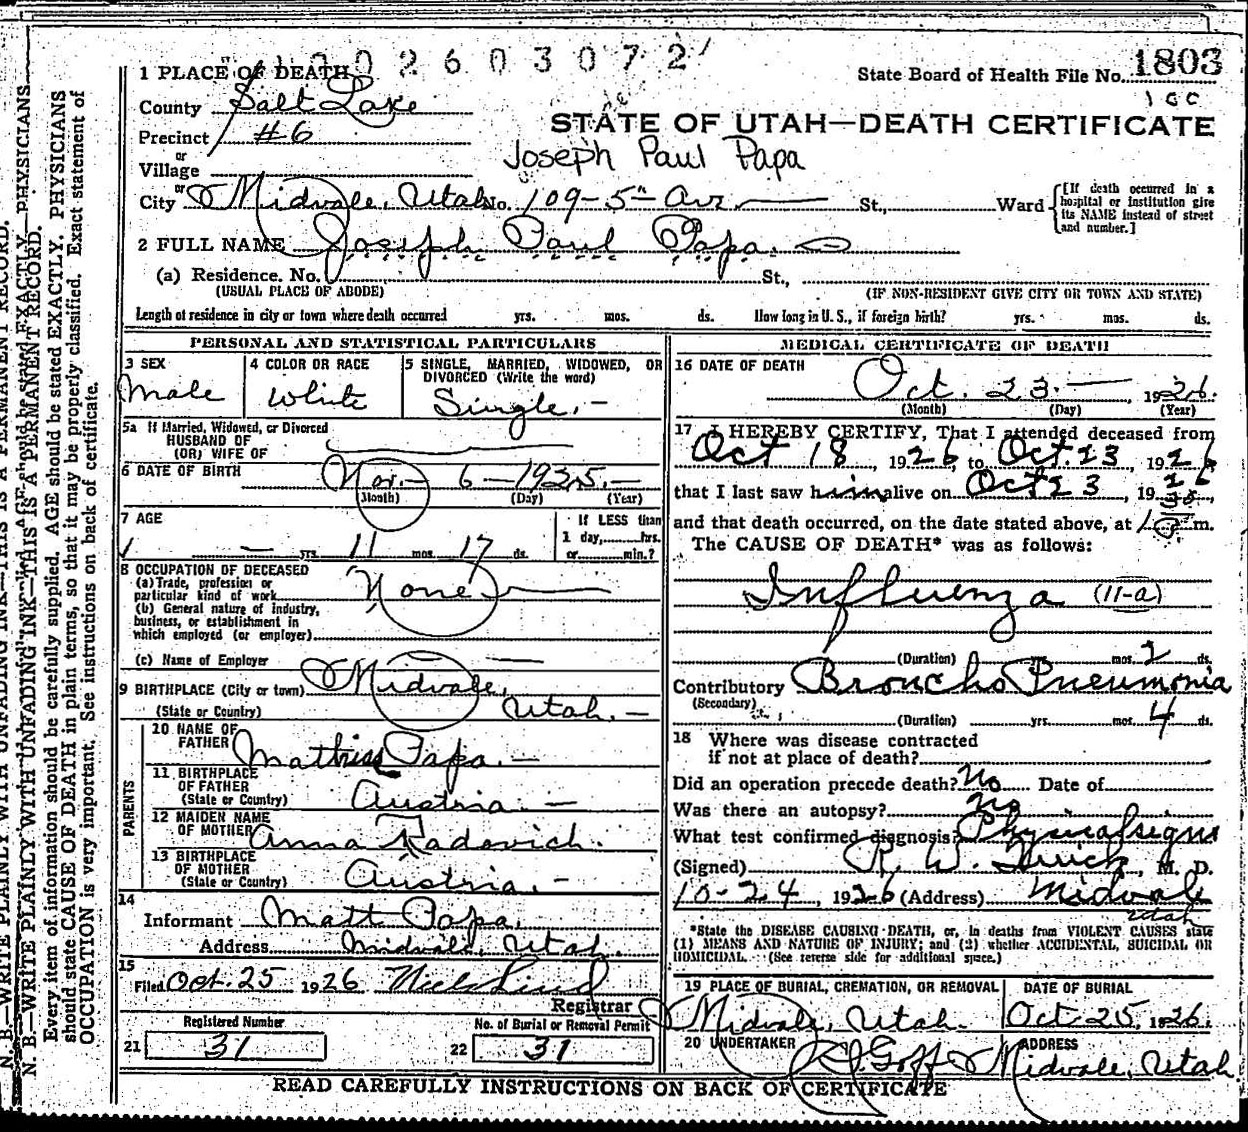 N. B.—WRITE PLAINLY WITH UNFADING INK—THIS IS A PERMANENT RECORD.
Every item of information should be carefully supplied. AGE should be stated EXACTLY. PHYSICIANS
should state CAUSE OF DEATH in plain terms, so that it may be properly classified. Exact statement of
OCCUPATION is very important. See instructions on back of certificate.
2603072
1 PLACE OF DEATH
State Board of Health File No. 1803
County Salt Lake
STATE OF UTAH—DEATH CERTIFICATE
Precinct #6
Joseph Paul Papa
or
Village
or
City Midvale, Utah No. 109-5th Ave St., Ward
[If death occurred in a
hospital or institution give
its NAME instead of street
and number.]
2 FULL NAME Joseph Paul Papa.
(a) Residence. No. St.,
(USUAL PLACE OF ABODE) (IF NON-RESIDENT GIVE CITY OR TOWN AND STATE)
Length of residence in city or town where death occurred yrs. mos. ds. How long in U. S., if foreign birth? yrs. mos. ds.
PERSONAL AND STATISTICAL PARTICULARS
3 SEX
Male
4 COLOR OR RACE
White
5 SINGLE, MARRIED, WIDOWED, OR
DIVORCED (Write the word)
Single.-
5a If Married, Widowed, or Divorced
HUSBAND OF
(OR) WIFE OF
6 DATE OF BIRTH Nov. 6-
(Month) (Day) (Year)
7 AGE
yrs. 11 mos. 17 ds.
If LESS than
1 day, hrs.
or min.?
8 OCCUPATION OF DECEASED
(a) Trade, profession or
particular kind of work None
(b) General nature of industry,
business, or establishment in
which employed (or employer)
(c) Name of Employer
9 BIRTHPLACE (City or town) Midvale,
(State or Country) Utah.-
PARENTS
10 NAME OF
FATHER Papa.-
11 BIRTHPLACE
OF FATHER
(State or Country) Austria.-
12 MAIDEN NAME
OF MOTHER Anna Radovich.
13 BIRTHPLACE
OF MOTHER
(State or Country) Austria.-
14
Informant Matt Papa,
Address Midvale, Utah.
15
Filed Oct. 25 1926
Registrar
Registered Number
21 31
No. of Burial or Removal Permit
22 31
MEDICAL CERTIFICATE OF DEATH
16 DATE OF DEATH
Oct. 23.- 1926.
(Month) (Day) (Year)
17 I HEREBY CERTIFY, That I attended deceased from
Oct 18, 1926, to Oct. 23, 1926
that I last saw him alive on Oct 23, 1926,
and that death occurred, on the date stated above, at m.
The CAUSE OF DEATH* was as follows:
Influenza (11-a)
(Duration) yrs. mos. 2 ds.
Contributory Broncho Pneumonia
(Secondary)
(Duration) yrs. mos. 4 ds.
18 Where was disease contracted
if not at place of death?
Did an operation precede death? No Date of
Was there an autopsy? No
What test confirmed diagnosis? Physical signs
(Signed) R. W. M. D.
10-24, 1926 (Address) Midvale
Utah
*State the DISEASE CAUSING DEATH, or, in deaths from VIOLENT CAUSES state
(1) MEANS AND NATURE OF INJURY; and (2) whether ACCIDENTAL, SUICIDAL OR
HOMICIDAL. (See reverse side for additional space.)
19 PLACE OF BURIAL, CREMATION, OR REMOVAL
Midvale, Utah.
DATE OF BURIAL
Oct. 25, 1926.
20 UNDERTAKER
Goff
ADDRESS
Midvale, Utah
READ CAREFULLY INSTRUCTIONS ON BACK OF CERTIFICATE